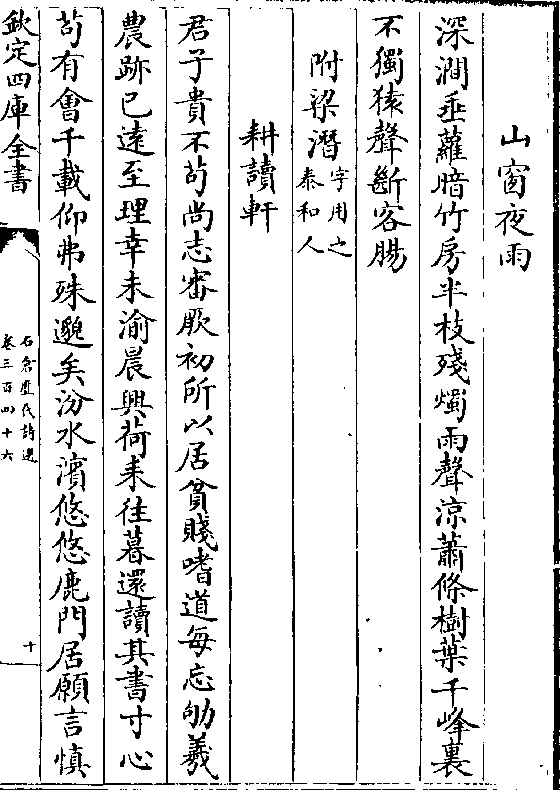 山窗夜雨
深澗垂蘿暗竹房半枝殘燭雨聲涼蕭條樹葉千峰裏
不獨猿聲斷客腸
附梁潛字用之
泰和人
耕讀軒
君子貴不苟尚志審厥初所以居貧賤嗜道每忘劬羲
農跡已遠至理幸未渝晨興荷耒往暮還讀其書寸心
苟有會千載仰弗殊邈矣汾水濱悠悠鹿門居願言慎
欽定四庫全書
石倉歷代詩選
卷三百四十六
十